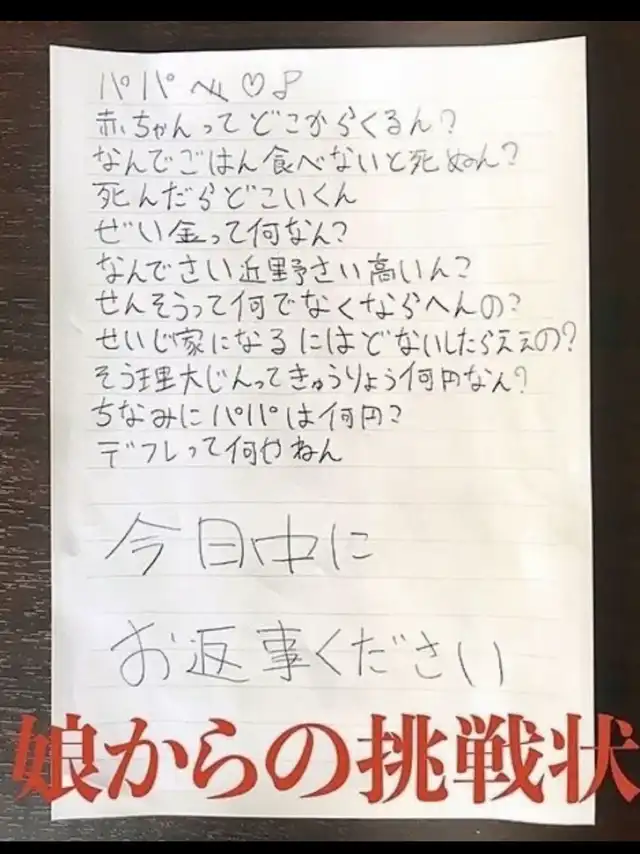 パパへ♡♪
赤ちゃんってどこからくるん?
なんでごはん食べないと死ぬん?
死んだらどこいくん
ぜい金って何なん?
なんでさい近野さい高いん?
せんそうって何でなくならへんの?
せいじ家になるにはどないしたらええの?
そう理大じんってきゅうりょう何円なん?
ちなみにパパは何円?
デフレって何やねん
今日中に
お返事ください
娘からの挑戦状